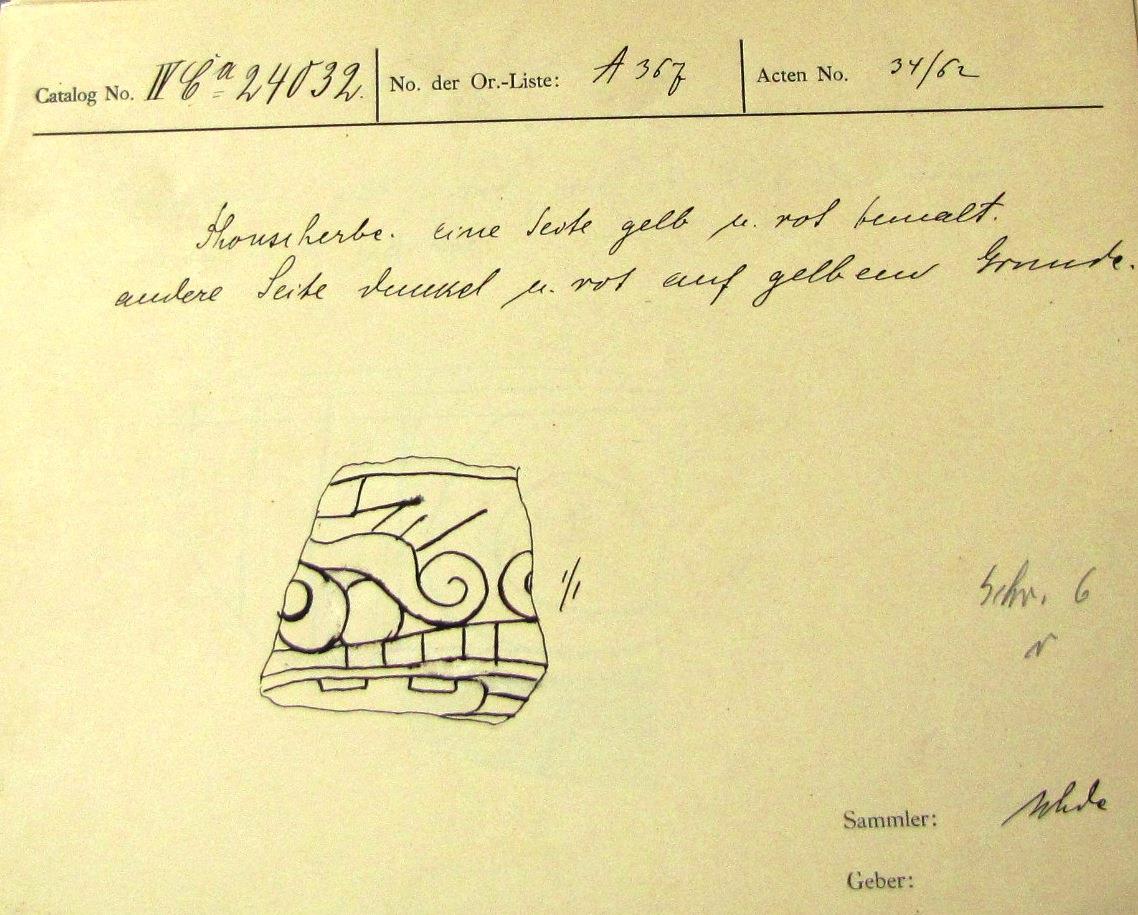 Catalog No. IV Ca 24032. No. der Or.-Liste: A 367 Acten No. 34/62
Thonscherbe. eine Seite gelb u. rot bemalt.
andere Seite dunkel u. rot auf gelbem Grunde.
1/1
Schr. 6
Sammler: Uhde
Geber: